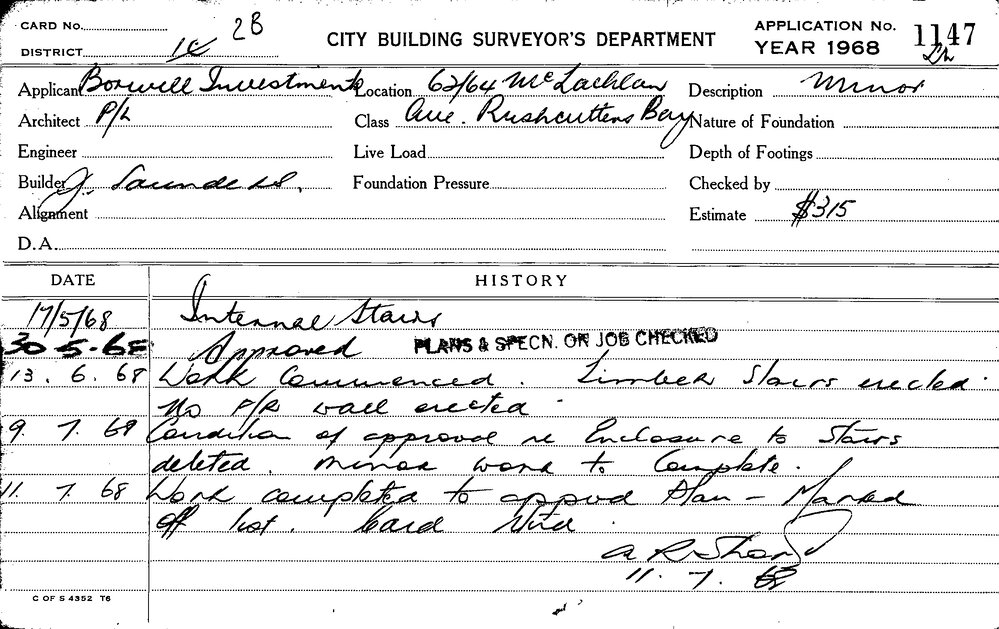 CARD No. 2B
DISTRICT 1c
CITY BUILDING SURVEYOR'S DEPARTMENT
APPLICATION No. 1147
YEAR 1968
Applicant Boxwell Investments Location 62/64 McLachlan Description Minor
Architect P/L Class Ave. Rushcutters Bay Nature of Foundation
Engineer Live Load Depth of Footings
Builder J. Saunders. Foundation Pressure Checked by
Alignment Estimate $315
D.A.
DATE HISTORY
17/5/68 Internal Stairs
30-5-68 Approved PLANS & SPECN. ON JOB CHECKED
13. 6. 68 Work Commenced. Timber Stairs erected.
No F/R wall erected.
9. 7. 68 Condition of approval re Enclosure to Stairs
deleted. Minor work to Complete.
11. 7. 68 Work completed to appvd Plan - Marked
off list. Card
A R Sharp
11. 7. 68
C OF S 4352 T6